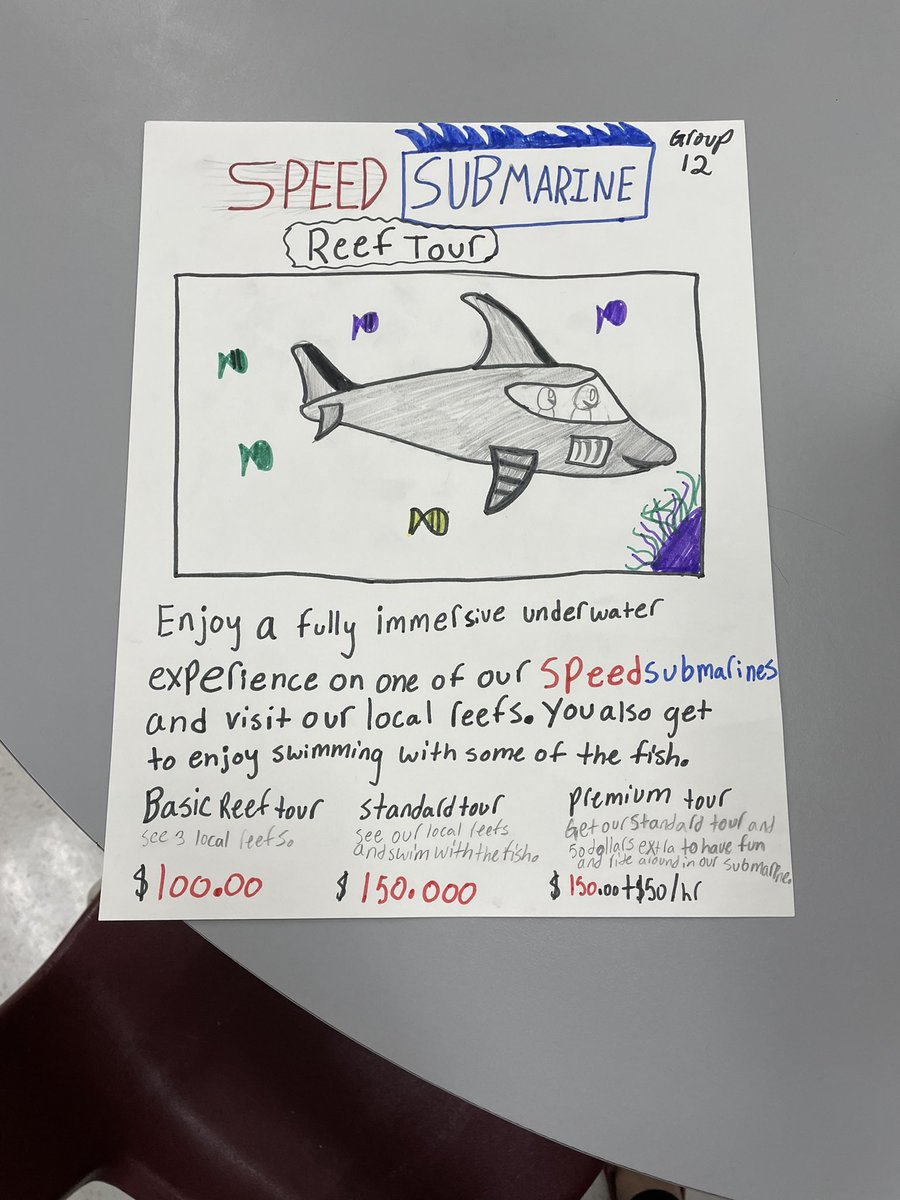 Group
12
SPEED SUBMARINE
Reef Tour
Enjoy a fully immersive underwater
experience on one of our Speedsubmarines
and visit our local reefs. You also get
to enjoy swimming with some of the fish.
Basic Reef tour
see 3 local reefs.
$100.00
Standard tour
see our local reefs
and swim with the fish.
$150.000
Premium tour
Get our Standard tour and
50 dollars extra to have fun
and ride around in our submarine.
$150.00+$50/hr